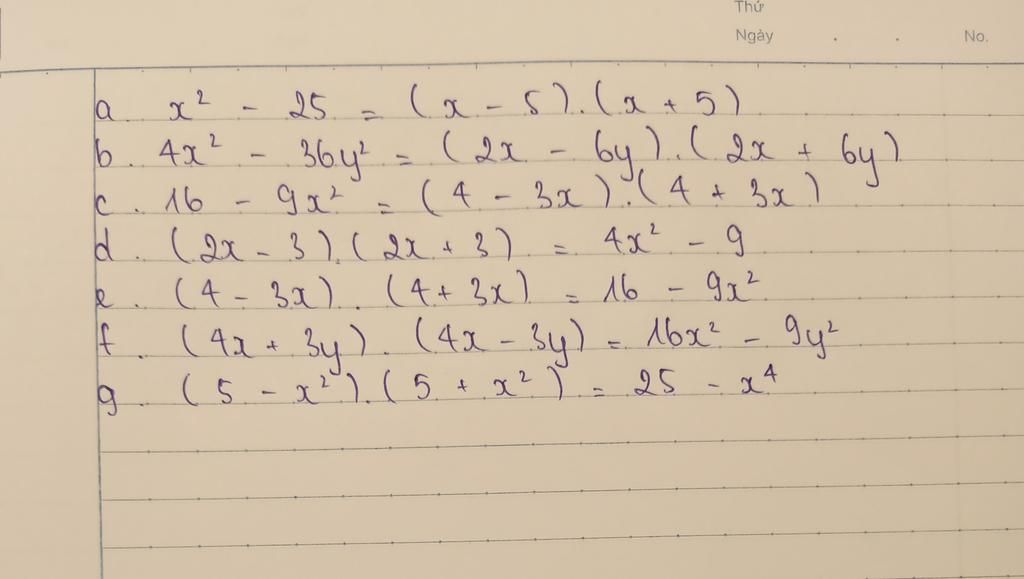 Thứ
Ngày . . No.
a. x² - 25 = (x - 5).(x + 5)
b. 4x² - 36y² = (2x - 6y).(2x + 6y)
c. 16 - 9x² = (4 - 3x).(4 + 3x)
d. (2x - 3).(2x + 3) = 4x² - 9
e. (4 - 3x).(4 + 3x) = 16 - 9x²
f. (4x + 3y).(4x - 3y) = 16x² - 9y²
g. (5 - x²).(5 + x²) = 25 - x⁴